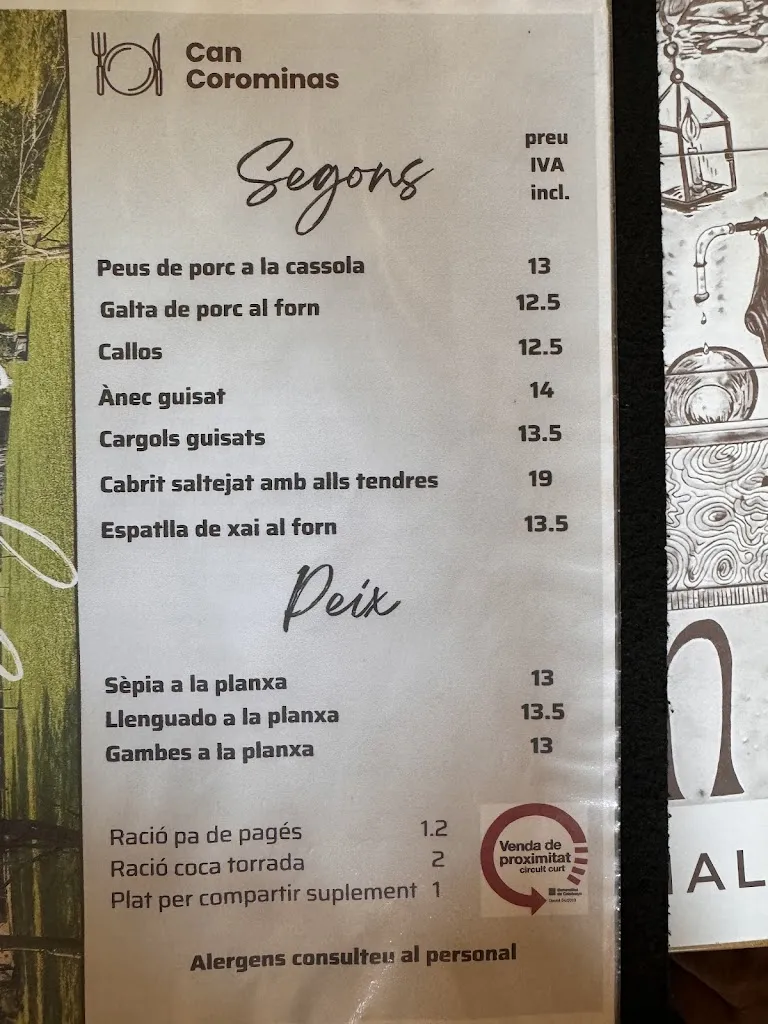 Can
Corominas
preu
IVA
incl.
Segons
Peus de porc a la cassola 13
Galta de porc al forn 12.5
Callos 12.5
Ànec guisat 14
Cargols guisats 13.5
Cabrit saltejat amb alls tendres 19
Espatlla de xai al forn 13.5
Peix
Sèpia a la planxa 13
Llenguado a la planxa 13.5
Gambes a la planxa 13
Ració pa de pagés 1.2
Ració coca torrada 2
Plat per compartir suplement 1
Venda de
proximitat
circuit curt
Alergens consulteu al personal